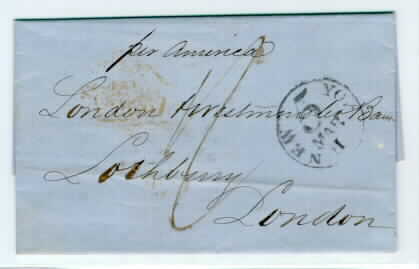 per America
London & Westminster Bank
Lothbury
London
NEW YO
MAY